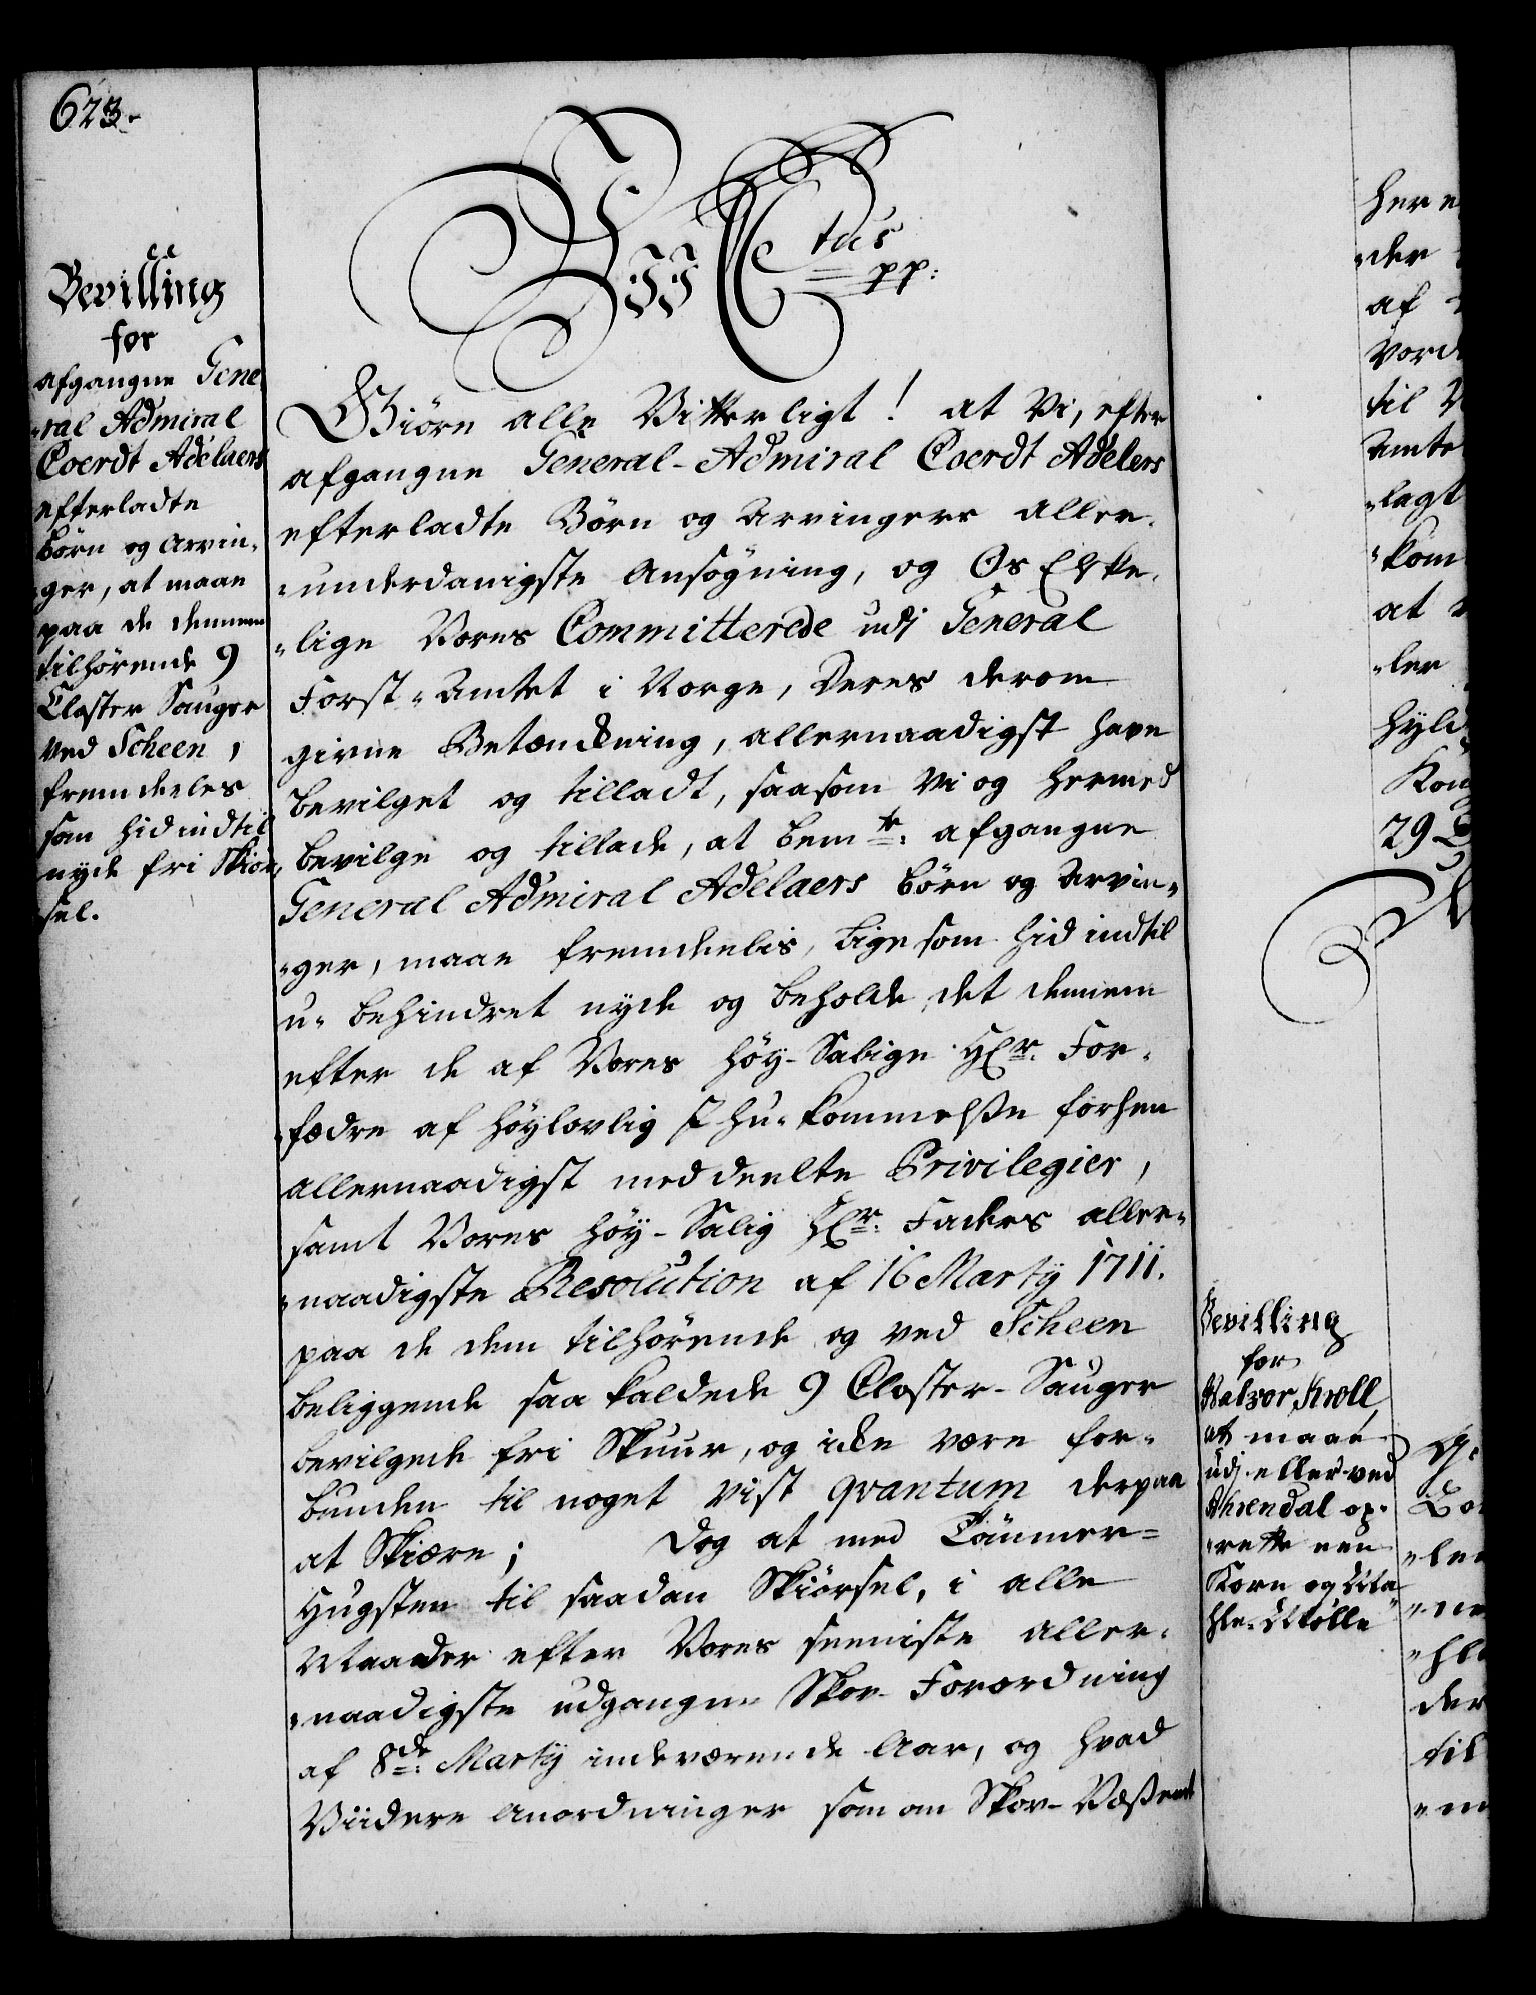 623.
Bevilling
for
afgangne Gene
-ral Admiral
Coerdt Adelaers
efterladte
Børn og Arvin-
-ger, at maae
paa de dennem
tilhørende 9
Closter Sauger
ved Scheen,
fremdeeles
som hidindtil
nyde fri Skiør-
sel.
Wii C tus
pp:
Giøre alle Vitterligt! at Vi, efter
afgangne General-Admiral Coerdt Adelers
efterladte Børn og Arvingers aller-
-underdanigste Ansøgning, og Os Elske-
-lige Vores Committerede udj General
Forst-Amtet i Norge, Deres derom
givne Betænckning, allernaadigst have
bevilget og tilladt, saasom Vi og hermed
bevilge og tillade, at bemte: afgangne
General Admiral Adelaers Børn og Arvin-
-ger, maae fremdeelis, ligesom hidindtil
u-behindret nyde og beholde det dennem
efter de af Vores Høy-Salige Hr. For-
-fædre af Høylovlig Ihu-kommelse forhen
allernaadigst meddeelte Privilegier,
samt Vores Høy-Salig Hr: Faders aller-
-naadigste Resolution af 16 Martij 1711.
paa de dem tilhørende og ved Scheen
beliggende saa kaldede 9 Closter-Sauger
bevilgede fri Skuur, og icke være for-
bunden til noget vist qvantum derpaa
at Skiære; Dog at med Tømmer-
Hugsten til saadan Skiørsel, i alle
Maader efter Vores seeniste aller-
-naadigste udgangne Skov-Forordning
af 8de: Martij indeværende Aar, og hvad
Viidere Anordninger som om Skov-Væsenet
her e
-der
af
vord
til
Amte
-lagt
-kom
at
-ler
Hyld
Kong
29
Bevilling
for
Halvor Kroll,
at maae
udj eller ved
Ahrendal op-
-rette een
Korn og Ma
hle-Mølle
-ne
-hle
der
til